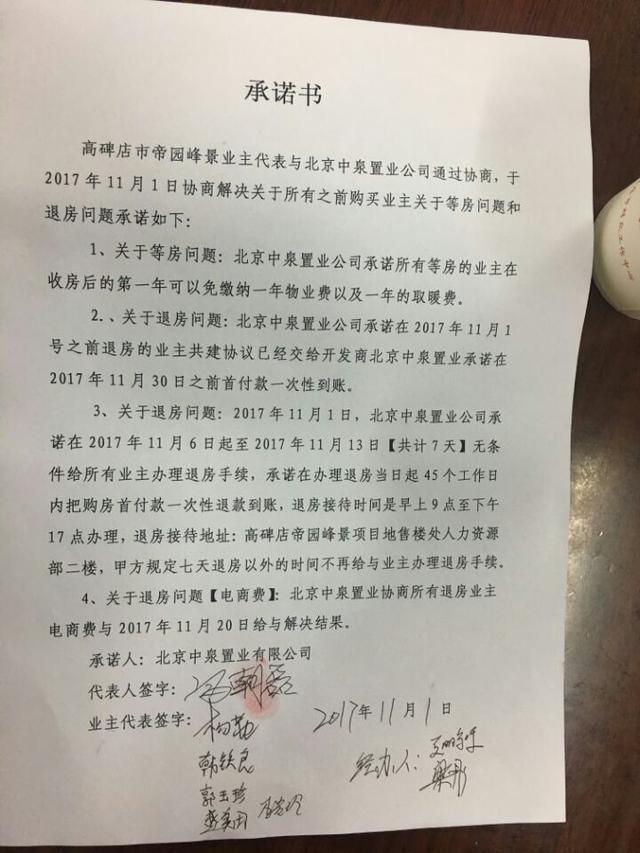 承诺书
高碑店市帝园峰景业主代表与北京中泉置业公司通过协商，于
2017年11月1日协商解决关于所有之前购买业主关于等房问题和
退房问题承诺如下：
1、关于等房问题：北京中泉置业公司承诺所有等房的业主在
收房后的第一年可以免缴纳一年物业费以及一年的取暖费。
2.、关于退房问题：北京中泉置业公司承诺在2017年11月1
号之前退房的业主共建协议已经交给开发商北京中泉置业承诺在
2017年11月30日之前首付款一次性到账。
3、关于退房问题：2017年11月1日，北京中泉置业公司承
诺在2017年11月6日起至2017年11月13日【共计7天】无条
件给所有业主办理退房手续，承诺在办理退房当日起45个工作日
内把购房首付款一次性退款到账，退房接待时间是早上9点至下午
17点办理，退房接待地址：高碑店帝园峰景项目地售楼处人力资源
部二楼，甲方规定七天退房以外的时间不再给与业主办理退房手续。
4、关于退房问题【电商费】：北京中泉置业协商所有退房业主
电商费与2017年11月20日给与解决结果。
承诺人：北京中泉置业有限公司
代表人签字：
业主代表签字：
2017年11月1日
韩铁良
经办人：
郭玉珍